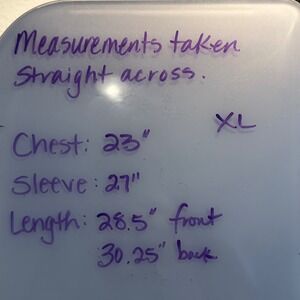 Measurements taken
straight across.
XL
Chest: 23"
Sleeve: 27"
Length: 28.5" front
30.25" back